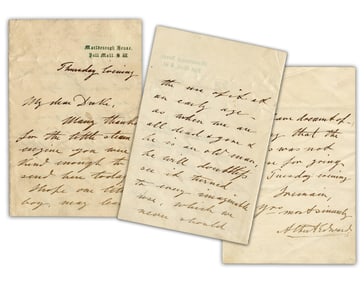 Marlborough House,
Pall Mall. S.W.
Thursday Evening
My dear
Many thanks
for the little steam
engine you were
kind enough to
send here today
I hope our little
boy may lea
the use of it at
an early age
as when we are
all dead & gone &
he is an old man,
he will doubtless
see it turned
to every imaginable
use, which we
never should
that the
was not
for going
Tuesday evening
I remain,
most sincerely